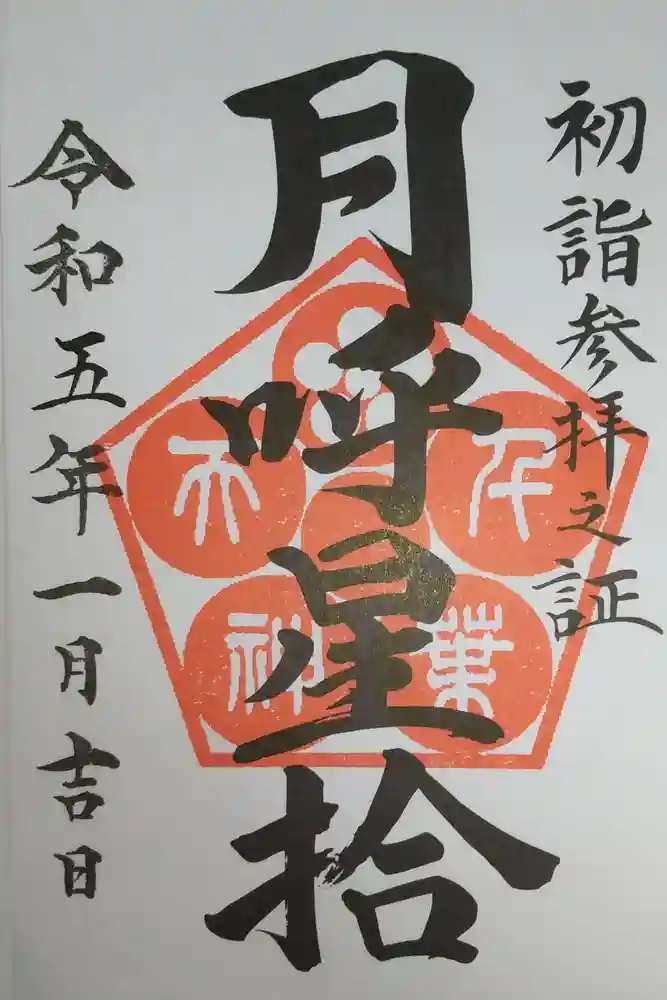 初詣参拝之証
月呼星拾
千葉
天神
令和五年一月吉日